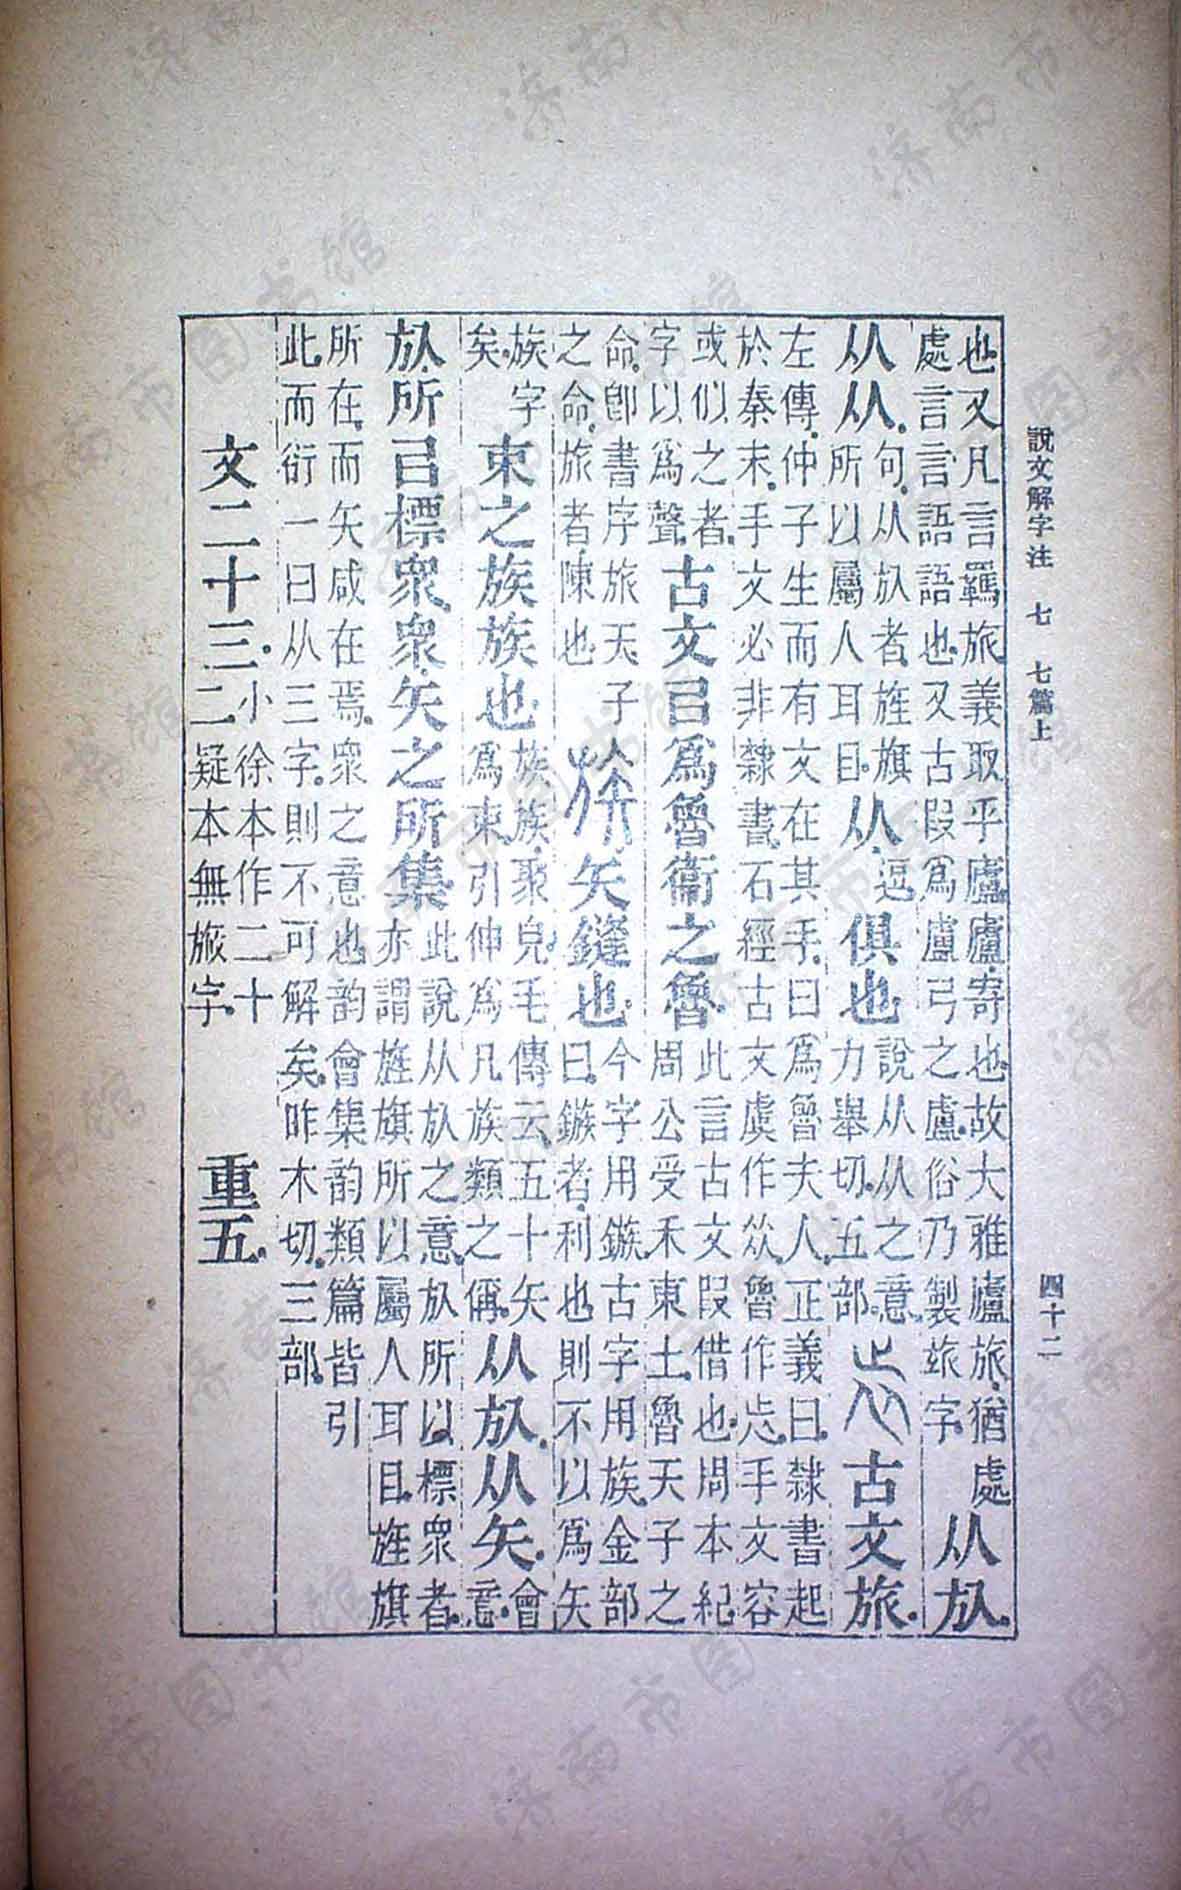 說文解字注 七 七篇上 四十二
也又凡言羈旅義取乎廬廬寄也故大雅廬旅猶處
處言言語語也又古叚爲廬弓之廬俗乃製玈字
从㫃
从从
句从㫃者旌旗
所以屬人耳目
从
逼
俱也
說从从之意
力舉切五部
古文旅
左傳仲子生而有文在其手曰爲魯夫人正義曰隸書起
於秦末手文必非隸書石經古文虞作𠈌魯作㞣手文容
或似之者
字以爲聲
古文㠯爲魯衞之魯
此言古文叚借也周本紀
周公受禾東土魯天子之
命卽書序旅天子
之命旅者陳也
族
矢鏠也
今字用鏃古字用族金部
曰鏃者利也則不以爲矢
族字
矣
束之族族也
族族聚皃毛傳云五十矢
爲束引伸爲凡族類之偁
从㫃从矢
會
意
㫃所㠯標眾眾矢之所集
此說从㫃之意㫃所以標眾者
亦謂旌旗所以屬人耳目旌旗
所在而矢咸在焉眾之意也韵會集韵類篇皆引
此而衍一曰从三字則不可解矣昨木切三部
文二十三
小徐本作二十
二疑本無旅字
重五